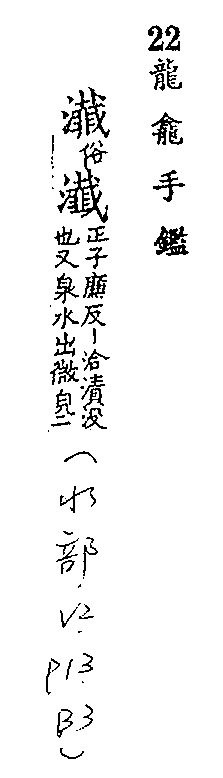 22龍龕手鑑
俗瀸正子廉反丨洽漬沒
也又泉水出微皃二
(水部.V2.P13.B3)